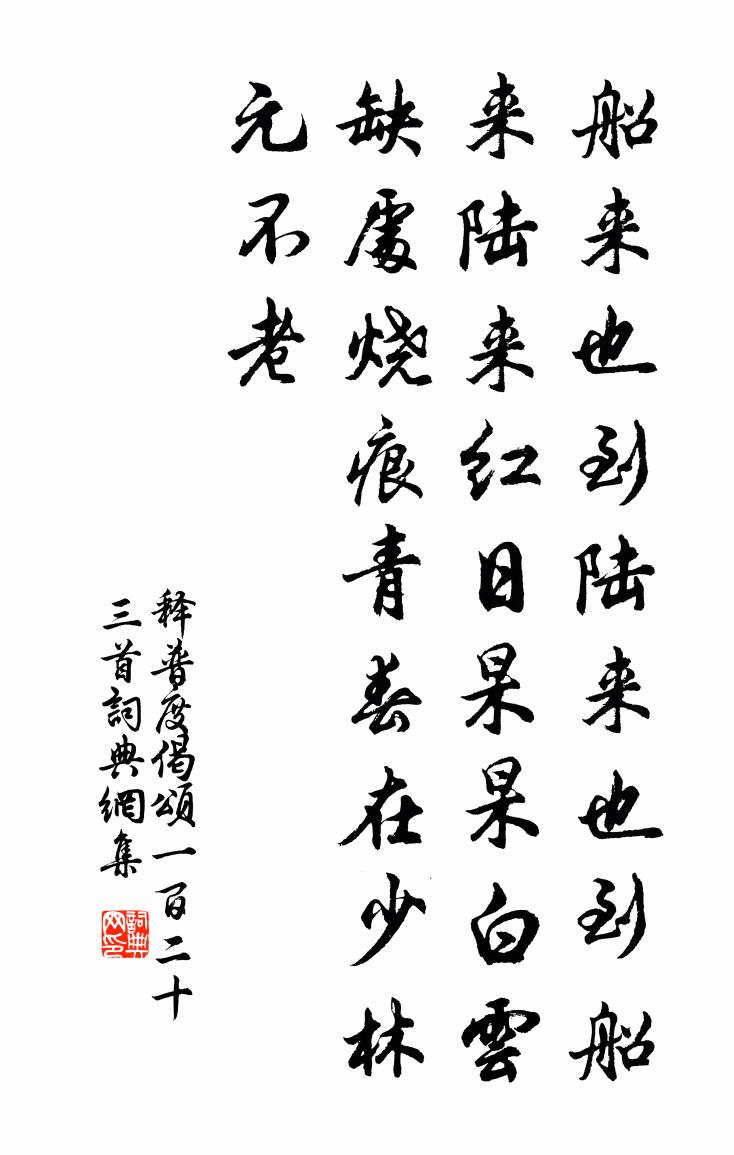 船来也到陆来也到船
来陆来红日杲杲白雲
缺處烧痕青春在少林
元不老
释普度偈頌一百二十
三首詞典網集
詞典网印